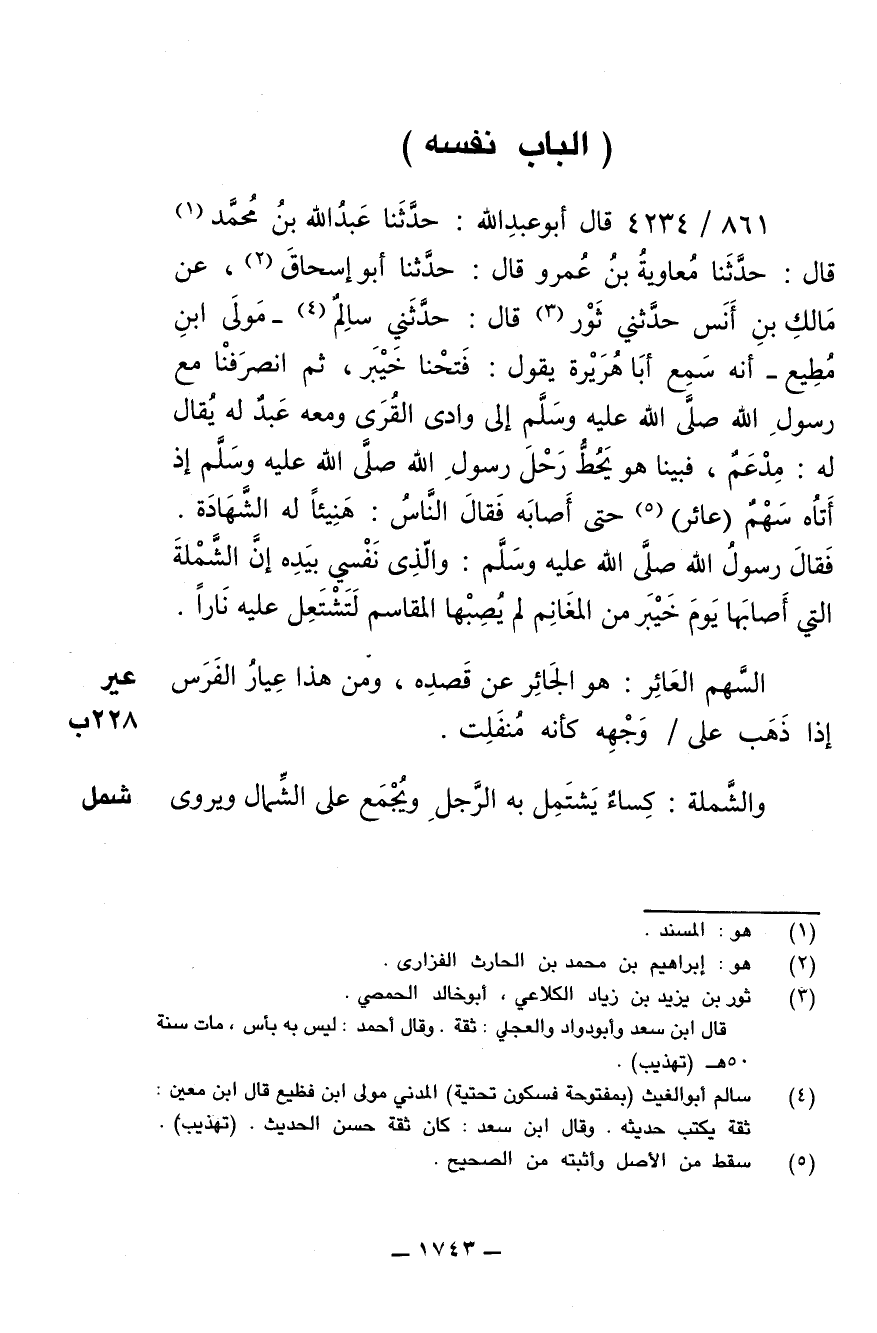 ( الباب نفسه )
٨٦١ / ٤٢٣٤ قال أبوعبدِالله : حدَّثَنا عَبدُالله بنُ مُحمَّد (١)
قال : حدَّثَنا مُعاويةُ بنُ عُمرو قال : حدَّثنا أبو إسحاقَ (٢) ، عن
مَالكِ بنِ أَنَس حدَّثني ثَوْر (٣) قال : حدَّثَني سالِمٌ (٤) ـ مَولَى ابنِ
مُطِيع ـ أنه سَمِع أبَا هُرَيْرة يقول : فَتحْنا خَيْبَر ، ثم انصرَفنْا مع
رسولِ الله صلَّى الله عليه وسَلَّم إلى وادى القُرَى ومعه عَبدٌ له يُقال
له : مِدْعَمٌ ، فبينا هو يَحُطُّ رَحْلَ رسولِ الله صلَّى الله عليه وسَلَّم إذ
أتاُه سَهْمٌ (عائر) (٥) حتى أَصابَه فَقالَ النَّاسُ : هَنِيئاً له الشَّهَادَة .
فَقالَ رسولُ الله صلَّى الله عليه وسَلَّم : والّذِى نَفْسي بيَدِه إنَّ الشَّمْلةَ
التي أَصابَها يَومَ خَيْبَر من المغَانِم لم يُصِبْها المقاسم لَتَشْتَعِل عليه نَاراً .
السَّهم العَائِر : هو الجَائِر عن قَصدِه ، ومن هذا عِيارُ الفَرَس عير
إذا ذَهَب على / وَجْهِه كأنه مُنفَلِت . ٢٢٨ب
والشَّملة : كِساءٌ يَشتَمِل به الرَّجلِ ويُجْمَع على الشِّمال ويروى شمل
(١) هو : المسند .
(٢) هو : إبراهيم بن محمد بن الحارث الفزارى .
(٣) ثور بن يزيد بن زياد الكلاعي ، أبوخالد الحمصي .
قال ابن سعد وأبودواد والعجلي : ثقة . وقال أحمد : ليس به بأس ، مات سنة
٥٠هـ (تهذيب) .
(٤) سالم أبوالغيث (بمفتوحة فسكون تحتية) المدني مولى ابن فظيع قال ابن معين :
ثقة يكتب حديثه . وقال ابن سعد : كان ثقة حسن الحديث . (تهذيب) .
(٥) سقط من الأصل وأثبته من الصحيح .
ـ ١٧٤٣ ـ